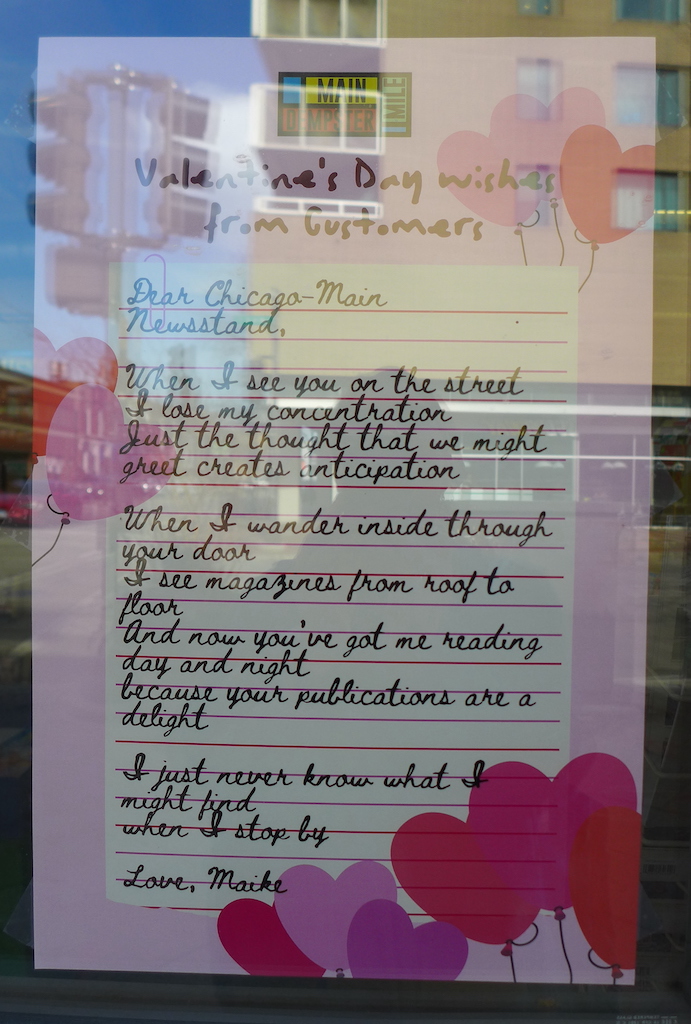 MAIN
DEMPSTER
MILE
Valentine's Day wishes
from Customers
Dear Chicago-Main
Newsstand,
When I see you on the street
I lose my concentration
Just the thought that we might
greet creates anticipation
When I wander inside through
your door
I see magazines from roof to
floor
And now you've got me reading
day and night
because your publications are a
delight
I just never know what I
might find
when I stop by
Love, Maike